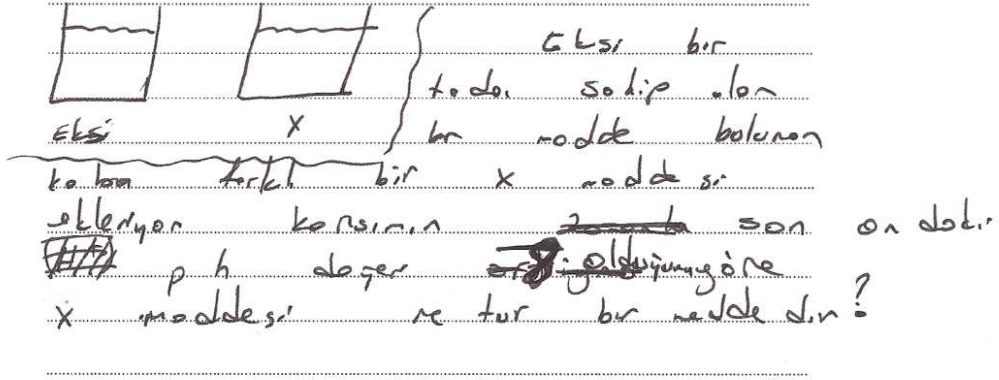 Eksi bir
tada sahip olan
Eksi X bir madde bulunan
kaba farklı bir x maddesi
ekleniyor karışımın son andaki
ph değer 8 olduğuna göre
x maddesi ne tür bir maddedir?